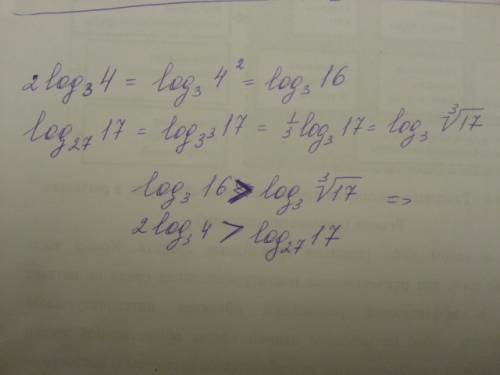 2log₃4 = log₃4² = log₃16
log₂₇17 = log₃³17 = ⅓log₃17 = log₃∛17
log₃16 > log₃∛17 =>
2log₃4 > log₂₇17